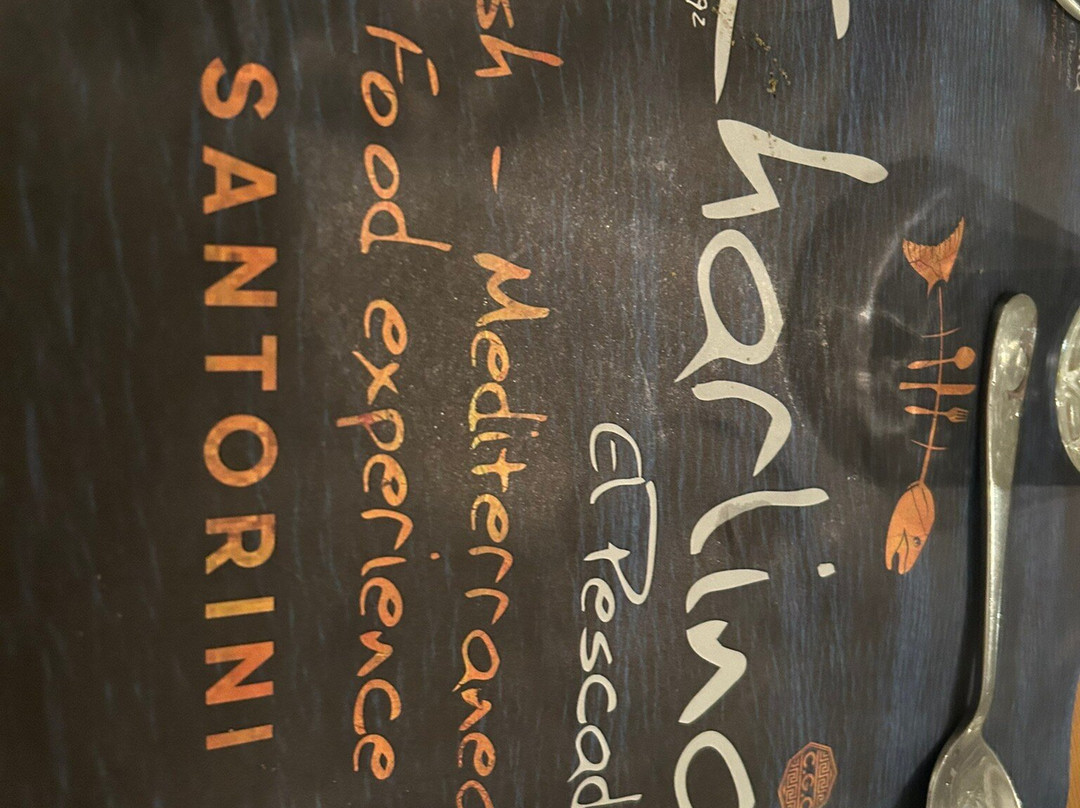 harlino
El Pescad
sh - Mediterranea
Food experience
SANTORINI